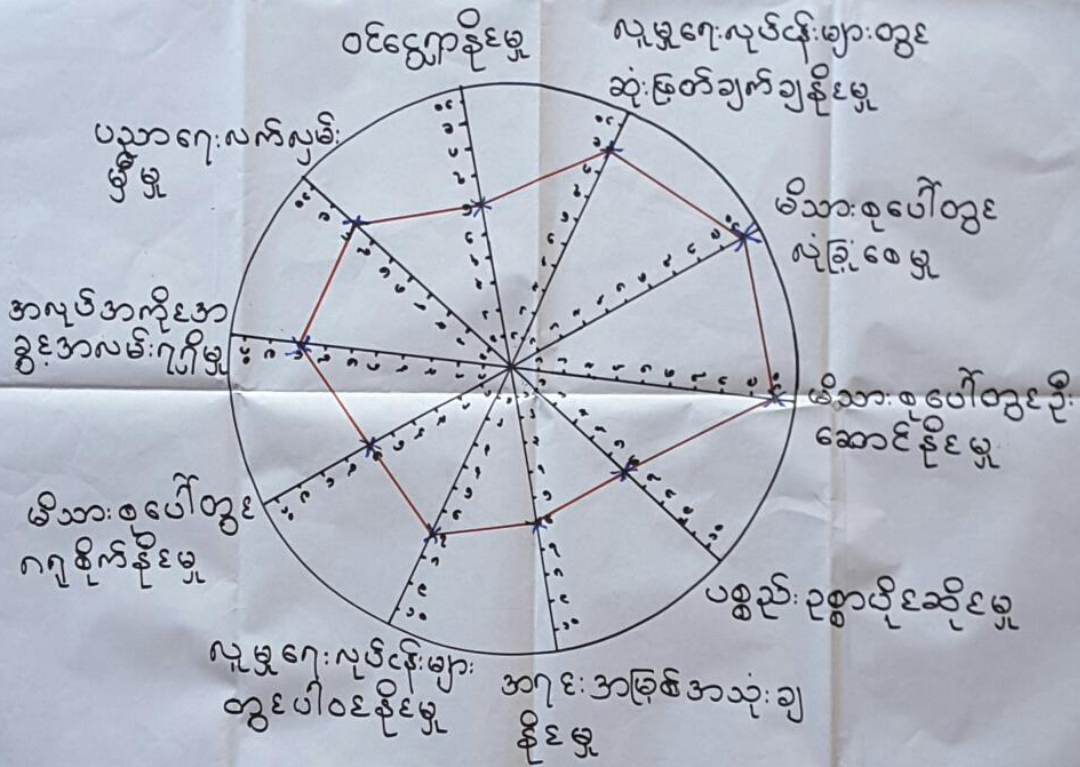 ဝင်ငွေရှာနိုင်မှု
လူမှုရေးလုပ်ငန်းများတွင်
ဆုံးဖြတ်ချက်ချနိုင်မှု
မိသားစုပေါ်တွင်
လုံခြုံစေမှု
မိသားစုပေါ်တွင်ဦး
ဆောင်နိုင်မှု
ပစ္စည်းဥစ္စာပိုင်ဆိုင်မှု
အရင်းအမြစ်အသုံးချ
နိုင်မှု
လူမှုရေးလုပ်ငန်းများ
တွင်ပါဝင်နိုင်မှု
မိသားစုပေါ်တွင်
ဂရုစိုက်နိုင်မှု
အလုပ်အကိုင်အ
ခွင့်အလမ်းရရှိမှု
ပညာရေးလက်လှမ်း
မှီမှု